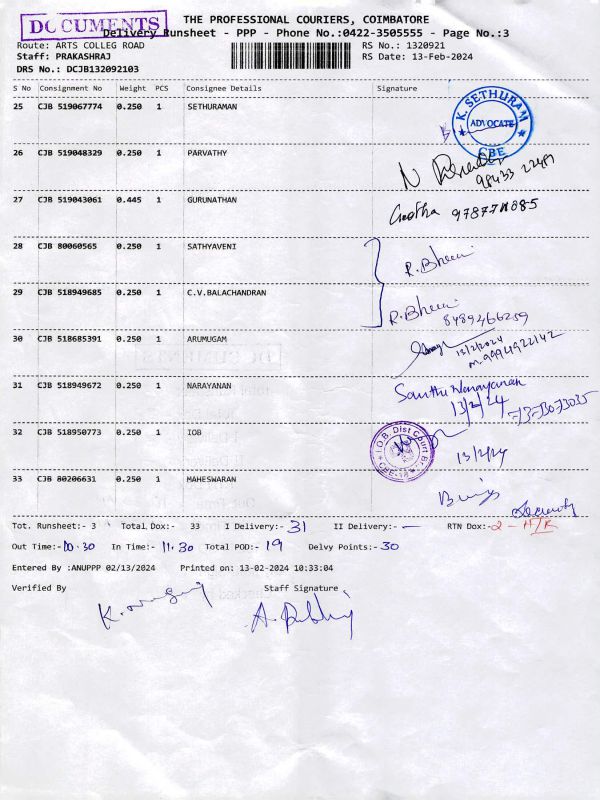 DOCUMENTS
THE PROFESSIONAL COURIERS, COIMBATORE
Delivery Runsheet - PPP - Phone No.:0422-3505555 - Page No.:3
Route: ARTS COLLEG ROAD RS No.: 1320921
Staff: PRAKASHRAJ RS Date: 13-Feb-2024
DRS No.: DCJB132092103
S No Consignment No Weight PCS Consignee Details Signature
25 CJB 519067774 0.250 1 SETHURAMAN
K. SETHURAM ADVOCATE CBE
26 CJB 519048329 0.250 1 PARVATHY
98433 22481
27 CJB 519043061 0.445 1 GURUNATHAN
Geetha
28 CJB 80060565 0.250 1 SATHYAVENI
R. Bheem
29 CJB 518949685 0.250 1 C.V.BALACHANDRAN
R. Bheem
8489466259
30 CJB 518685391 0.250 1 ARUMUGAM
13/2/2024
M. 9994922142
31 CJB 518949672 0.250 1 NARAYANAN
Santhi Narayanan
13/2/24
32 CJB 518950773 0.250 1 IOB
I.O.B. Dist Court Br. CBE-18
13/2/24
33 CJB 80206631 0.250 1 MAHESWARAN
Security
Tot. Runsheet:- 3 Total Dox:- 33 I Delivery:- 31 II Delivery:- — RTN Dox:- 2 -
Out Time:- 10.30 In Time:- 11.30 Total POD:- 19 Delvy Points:- 30
Entered By :ANUPPP 02/13/2024 Printed on: 13-02-2024 10:33:04
Verified By Staff Signature